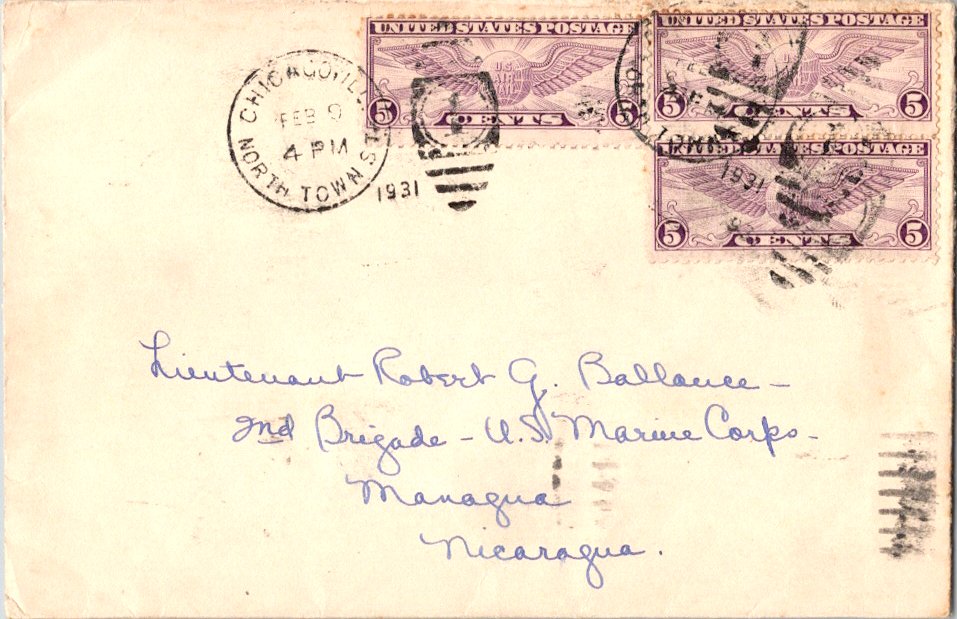 UNITED STATES POSTAGE
U.S. AIR MAIL
5 CENTS 5
UNITED STATES POSTAGE
5 CENTS 5
UNITED STATES POSTAGE
5 CENTS 5
CHICAGO, ILL.
FEB 9
4 PM
NORTH TOWN STA.
1931
1931
Lieutenant Robert G. Ballance –
2nd Brigade – U.S. Marine Corps –
Managua
Nicaragua.